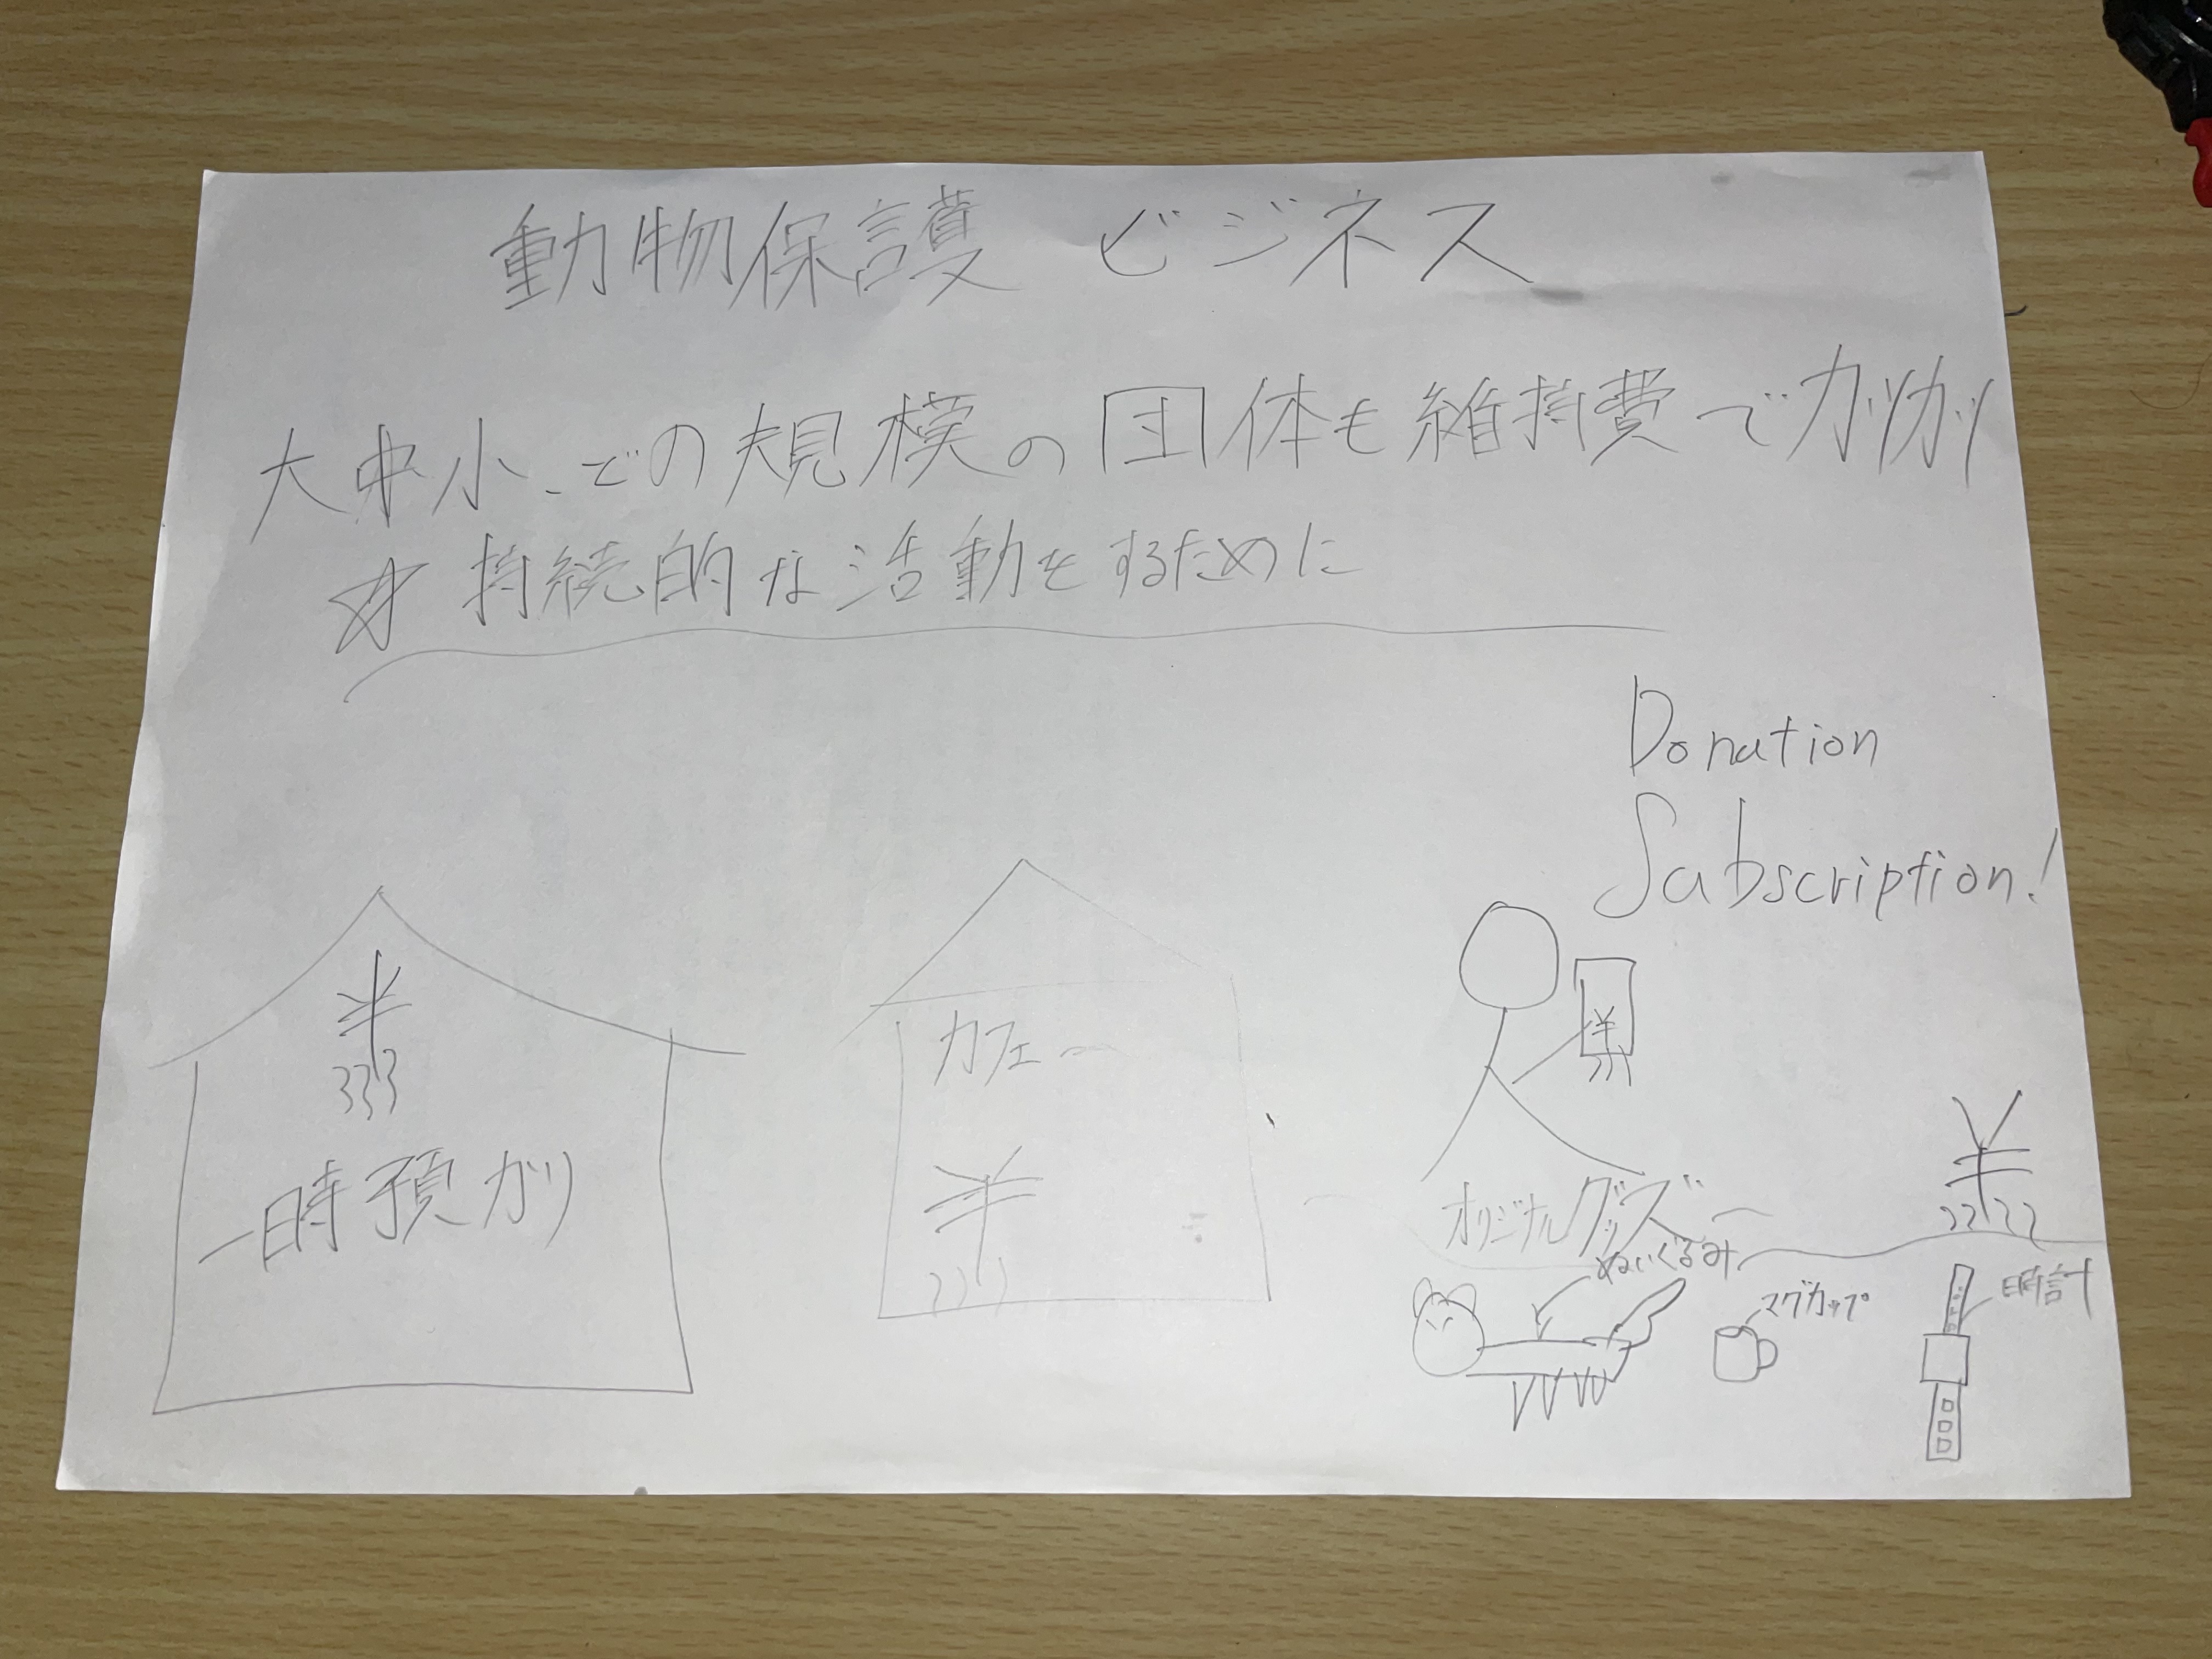 動物保護 ビジネス
大中小、どの規模の団体も維持費でカツカツ
☆ 持続的な活動をするために
Donation
Subscription!
¥
一時預かり
カフェー
¥
¥
オリジナルグッズ
¥
ぬいぐるみ
マグカップ
時計